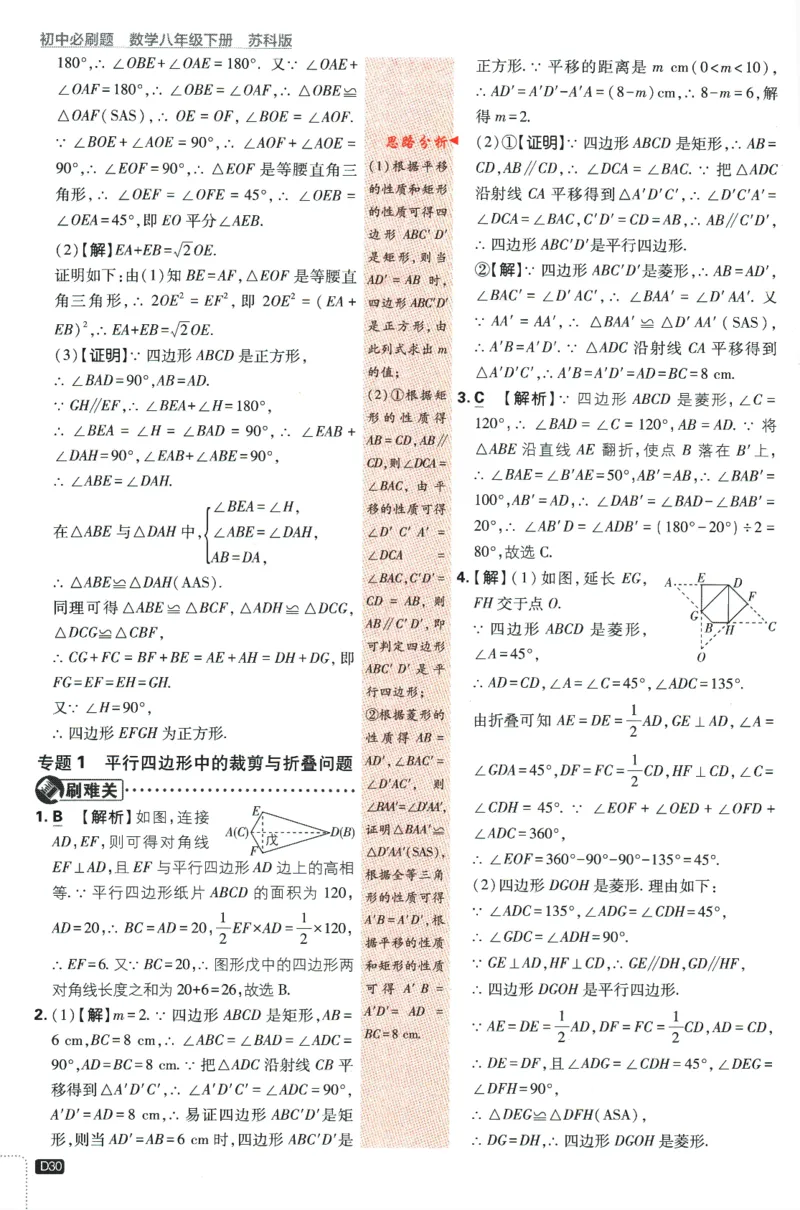 初中必刷题 数学八年级下册 苏科版
180°,∴ ∠OBE+∠OAE=180°. 又∵ ∠OAE+
∠OAF=180°,∴ ∠OBE=∠OAF,∴ △OBE≌
△OAF(SAS),∴ OE=OF,∠BOE=∠AOF.
∵ ∠BOE+∠AOE=90°,∴ ∠AOF+∠AOE=
90°,∴ ∠EOF=90°,∴ △EOF 是等腰直角三
角形,∴ ∠OEF=∠OFE=45°,∴ ∠OEB=
∠OEA=45°,即 EO 平分∠AEB.
(2)【解】EA+EB=√2OE.
证明如下:由(1)知 BE=AF,△EOF 是等腰直
角三角形,∴ 2OE²=EF²,即 2OE²=(EA+
EB)²,∴ EA+EB=√2OE.
(3)【证明】∵ 四边形 ABCD 是正方形,
∴ ∠BAD=90°,AB=AD.
∵ GH∥EF,∴ ∠BEA+∠H=180°,
∴ ∠BEA=∠H=∠BAD=90°,∴ ∠EAB+
∠DAH=90°,∠EAB+∠ABE=90°,
∴ ∠ABE=∠DAH.
在△ABE 与△DAH 中,{∠BEA=∠H,
∠ABE=∠DAH,
AB=DA,
∴ △ABE≌△DAH(AAS).
同理可得△ABE≌△BCF,△ADH≌△DCG,
△DCG≌△CBF,
∴ CG+FC=BF+BE=AE+AH=DH+DG,即
FG=EF=EH=GH.
又∵ ∠H=90°,
∴ 四边形 EFGH 为正方形.
专题1 平行四边形中的裁剪与折叠问题
刷难关
1. B 【解析】如图,连接
AD,EF,则可得对角线
EF⊥AD,且 EF 与平行四边形 AD 边上的高相
等.∵ 平行四边形纸片 ABCD 的面积为 120,
AD=20,∴ BC=AD=20,1/2EF×AD=1/2×120,
∴ EF=6. 又∵ BC=20,∴ 图形戊中的四边形两
对角线长度之和为 20+6=26,故选 B.
E
A(C)
D(B)
戊
F
2. (1)【解】m=2.∵ 四边形 ABCD 是矩形,AB=
6 cm,BC=8 cm,∴ ∠ABC=∠BAD=∠ADC=
90°,AD=BC=8 cm.∵ 把△ADC 沿射线 CB 平
移得到△A′D′C′,∴ ∠A′D′C′=∠ADC=90°,
A′D′=AD=8 cm,∴ 易证四边形 ABC′D′是矩
形,则当 AD′=AB=6 cm 时,四边形 ABC′D′是
D30
思路分析
(1)根据平移
的性质和矩形
的性质可得四
边形 ABC′D′
是矩形,则当
AD′=AB 时,
四边形ABC′D′
是正方形,由
此列式求出 m
的值;
(2)①根据矩
形的性质得
AB=CD,AB∥
CD,则∠DCA=
∠BAC,由平
移的性质可得
∠D′C′A′=
∠DCA =
∠BAC,C′D′=
CD=AB,则
AB∥C′D′,即
可判定四边形
ABC′D′是平
行四边形;
②根据菱形的
性质得 AB=
AD′,∠BAC′=
∠D′AC′,则
∠BAA′=∠D′AA′,
证明△BAA′≌
△D′AA′(SAS),
根据全等三角
形的性质可得
A′B=A′D′,根
据平移的性质
和矩形的性质
可得 A′B=
A′D′=AD=
BC=8 cm.
正方形.∵ 平移的距离是 m cm(0<m<10),
∴ AD′=A′D′-A′A=(8-m)cm,∴ 8-m=6,解
得 m=2.
(2)①【证明】∵ 四边形 ABCD 是矩形,∴ AB=
CD,AB∥CD,∴ ∠DCA=∠BAC.∵ 把△ADC
沿射线 CA 平移得到△A′D′C′,∴ ∠D′C′A′=
∠DCA=∠BAC,C′D′=CD=AB,∴ AB∥C′D′,
∴ 四边形 ABC′D′是平行四边形.
②【解】∵ 四边形 ABC′D′是菱形,∴ AB=AD′,
∠BAC′=∠D′AC′,∴ ∠BAA′=∠D′AA′. 又
∵ AA′=AA′,∴ △BAA′≌△D′AA′(SAS),
∴ A′B=A′D′.∵ △ADC 沿射线 CA 平移得到
△A′D′C′,∴ A′B=A′D′=AD=BC=8 cm.
3. C 【解析】∵ 四边形 ABCD 是菱形,∠C=
120°,∴ ∠BAD=∠C=120°,AB=AD.∵ 将
△ABE 沿直线 AE 翻折,使点 B 落在 B′上,
∴ ∠BAE=∠B′AE=50°,AB′=AB,∴ ∠BAB′=
100°,AB′=AD,∴ ∠DAB′=∠BAD-∠BAB′=
20°,∴ ∠AB′D=∠ADB′=(180°-20°)÷2=
80°,故选 C.
4. 【解】(1)如图,延长 EG,
FH 交于点 O.
∵ 四边形 ABCD 是菱形,
∠A=45°,
A
E
D
F
G
B
H
C
O
∴ AD=CD,∠A=∠C=45°,∠ADC=135°.
由折叠可知 AE=DE=1/2AD,GE⊥AD,∠A=
∠GDA=45°,DF=FC=1/2CD,HF⊥CD,∠C=
∠CDH=45°.∵ ∠EOF+∠OED+∠OFD+
∠ADC=360°,
∴ ∠EOF=360°-90°-90°-135°=45°.
(2)四边形 DGOH 是菱形. 理由如下:
∵ ∠ADC=135°,∠ADG=∠CDH=45°,
∴ ∠GDC=∠ADH=90°.
∵ GE⊥AD,HF⊥CD,∴ GE∥DH,GD∥HF,
∴ 四边形 DGOH 是平行四边形.
∵ AE=DE=1/2AD,DF=FC=1/2CD,AD=CD,
∴ DE=DF,且∠ADG=∠CDH=45°,∠DEG=
∠DFH=90°,
∴ △DEG≌△DFH(ASA),
∴ DG=DH,∴ 四边形 DGOH 是菱形.